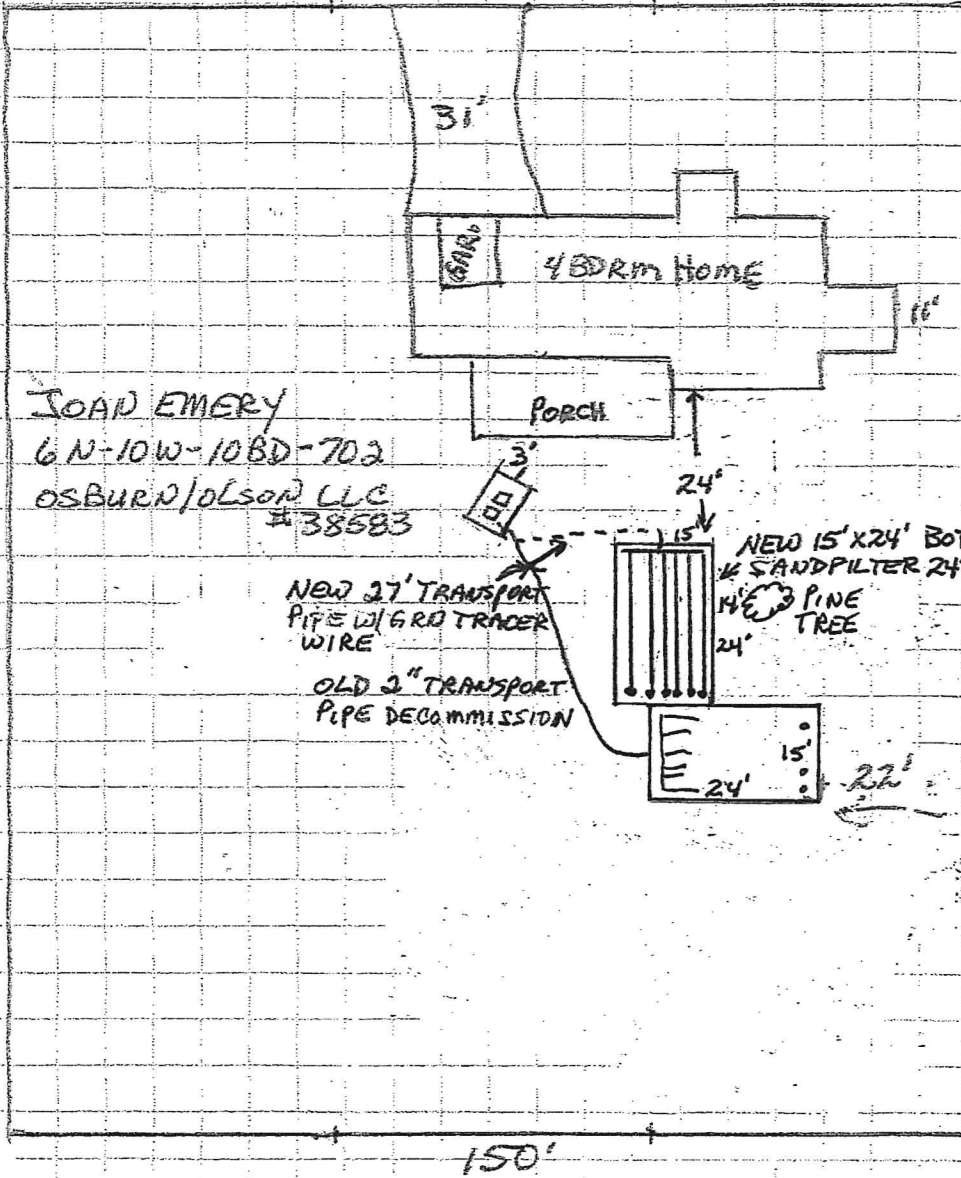 31'
GAR.
4 BDRM HOME
11'
PORCH
JOAN EMERY
6N-10W-10BD-702
OSBURN/OLSON LLC
#38583
3'
24'
15'
NEW 15'X24' BOT
SANDFILTER 24"
14'
PINE
TREE
24'
NEW 27' TRANSPORT
PIPE W/GRD TRACER
WIRE
OLD 2" TRANSPORT
PIPE DECOMMISSION
15'
24'
22'
150'